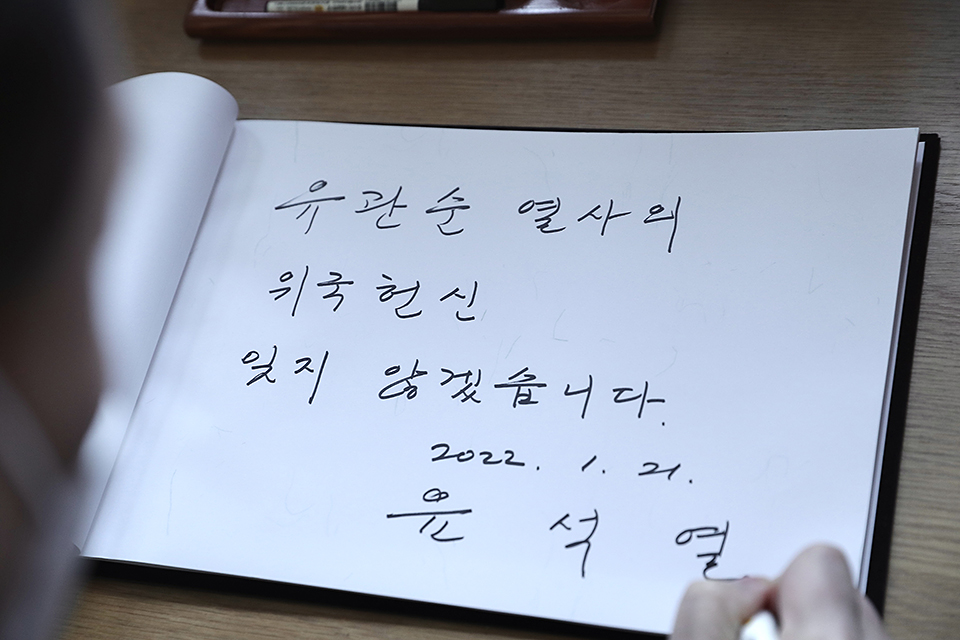 유관순 열사의
위국헌신
잊지 않겠습니다.
2022. 1. 21.
윤석열